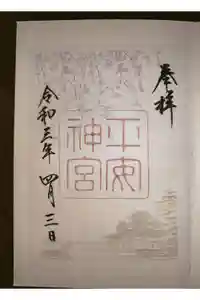 奉拝
平安神宮
令和三年 四月三日